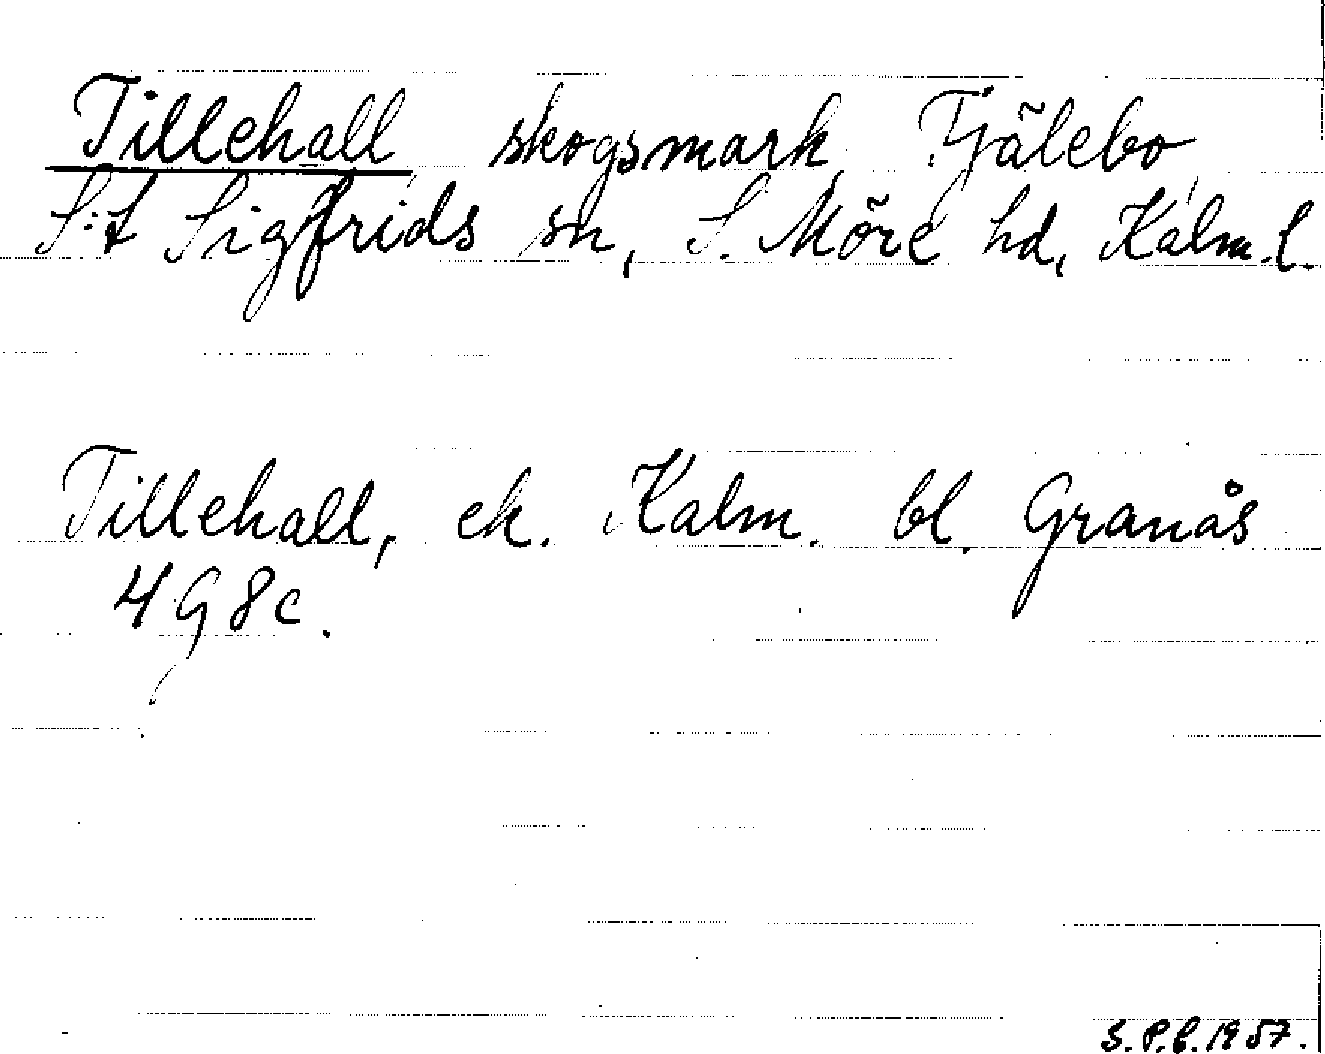 Tillehall skogsmark Tjälebo
S:t Sigfrids sn, S. Möre hd, Kalm. l.
Tillehall, ek. Kalm. bl. Granås
4 G 8 c.
S.P.B. 1957.